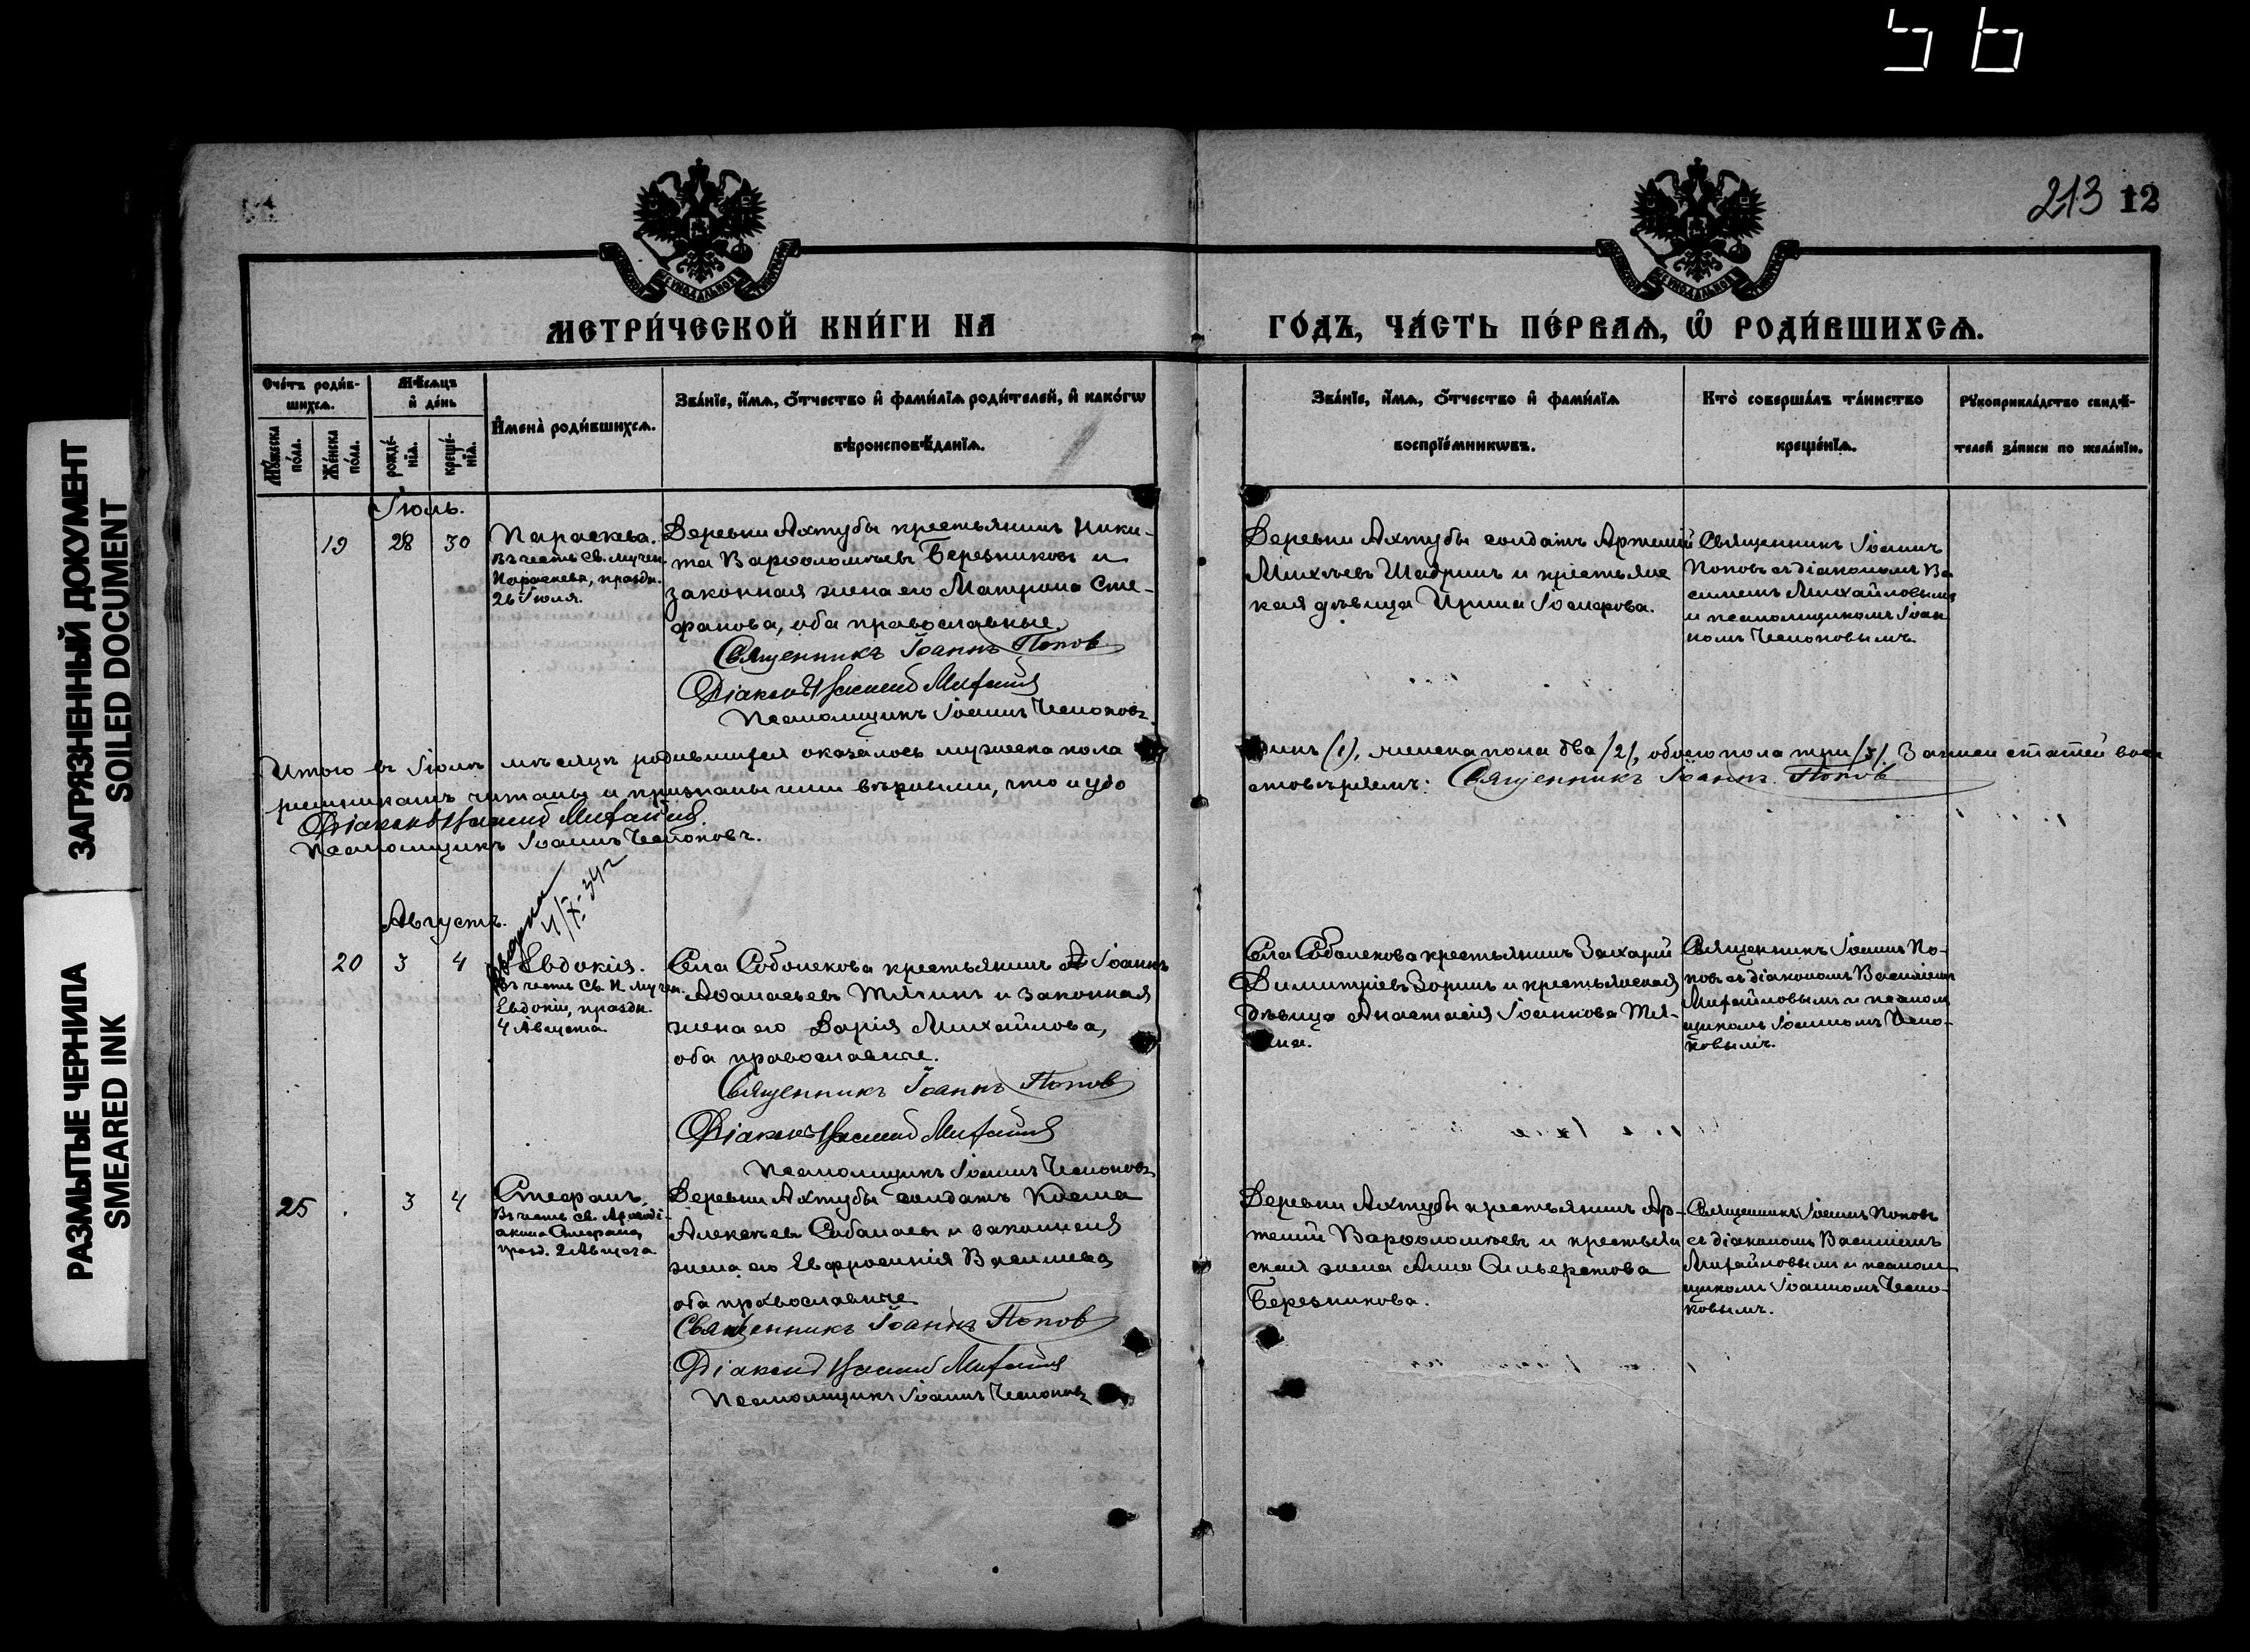 56
213 12
МЕТРИ́ЧЕСКОЙ КНИ́ГИ НА
ГО́ДЪ, ЧА́СТЬ ПЕ́РВАѦ, Ѡ РОДИ́ВШИХСѦ.
Сче́тъ роди́в-
шихсѧ.
Мѣсѧцъ
и де́нь
Мꙋ́жеска по́ла.
Же́нска по́ла.
рожде́-
нїѧ.
креще́-
нїѧ.
Имена̀ роди́вшихсѧ.
Зва́нїе, и́мѧ, о́тчество и фами́лїѧ роди́телей, и како́гѡ
вѣроисповѣ́данїѧ.
Зва́нїе, и́мѧ, о́тчество и фами́лїѧ
воспрїе́мникѡвъ.
Кто̀ соверша́лъ та́инство
креще́нїѧ.
Рꙋкоприкла́дство свидѣ́-
телей за́писи по жела́нїю.
Іюль.
19 28 30
Параскева.
Въ честь Св. мучен.
Параскевы, праздн.
26 Іюля.
Деревни Ахтубы крестьянинъ Ники-
та Варѳоломѣевъ Березниковъ и
законная жена его Матрона Сте-
фанова, оба православные.
Священникъ Іоаннъ Попов
Діаконъ Василий Михайлов
Псаломщикъ Іоаннъ Чесноковъ.
Деревни Ахтубы солдатъ Артемій
Михѣевъ Шадринъ и крестьянс
кая дѣвица Ирина Іосифова.
Священникъ Іоаннъ
Поповъ съ діакономъ Ва
силіемъ Михайловымъ
и псаломщикомъ Іоан
номъ Чесноковымъ.
Итого въ Іюлѣ мѣсяцѣ родившихся оказалось мужеска пола
динъ (1), женска пола два (2), обоего пола три (3). Записи статей вос
ріемникамъ читаны и признаны ими вѣрными, что и удо
стовѣряемъ: Священникъ Іоаннъ Попов
Діаконъ Василий Михайлов
Псаломщикъ Іоаннъ Чесноковъ.
4/X-34 г
Августъ.
20 3 4
Евдокія.
Въ честь Св. П. Мучен.
Евдокіи, праздн.
4 Августа.
Села Соболекова крестьянинъ Іоаннъ
Аѳанасьевъ Тягинъ и законная
жена его Дарія Михайлова,
оба православные.
Священникъ Іоаннъ Попов
Діаконъ Василий Михайлов
Псаломщикъ Іоаннъ Чесноковъ
Села Соболекова крестьянинъ Захарій
Димитріевъ Зоринъ и крестьянская
дѣвица Анастасія Іоаннова Тя-
ина.
Священникъ Іоаннъ По-
повъ съ діакономъ Василіемъ
Михайловымъ и псалом
щикомъ Іоанномъ Чесно-
ковымъ.
25 3 4
Стефанъ
Въ честь св. Архиді-
акона Стефана,
празд. 2 Августа
Деревни Ахтубы солдатъ Косма
Алексѣевъ Сабанаевъ и законная
жена его Евфросинія Васильева
оба православные
Священникъ Іоаннъ Попов
Діаконъ Василий Михайлов
Псаломщикъ Іоаннъ Чесноковъ
Деревни Ахтубы крестьянинъ Ар-
темій Варѳоломѣевъ и крестьян
ская жена Анна Сильверстова
Березникова.
Священникъ Іоаннъ Поповъ
съ діакономъ Василіемъ
Михайловымъ и псалом
щикомъ Іоанномъ Чесно-
ковымъ.
ЗАГРЯЗНЕННЫЙ ДОКУМЕНТ
SOILED DOCUMENT
РАЗМЫТЫЕ ЧЕРНИЛА
SMEARED INK